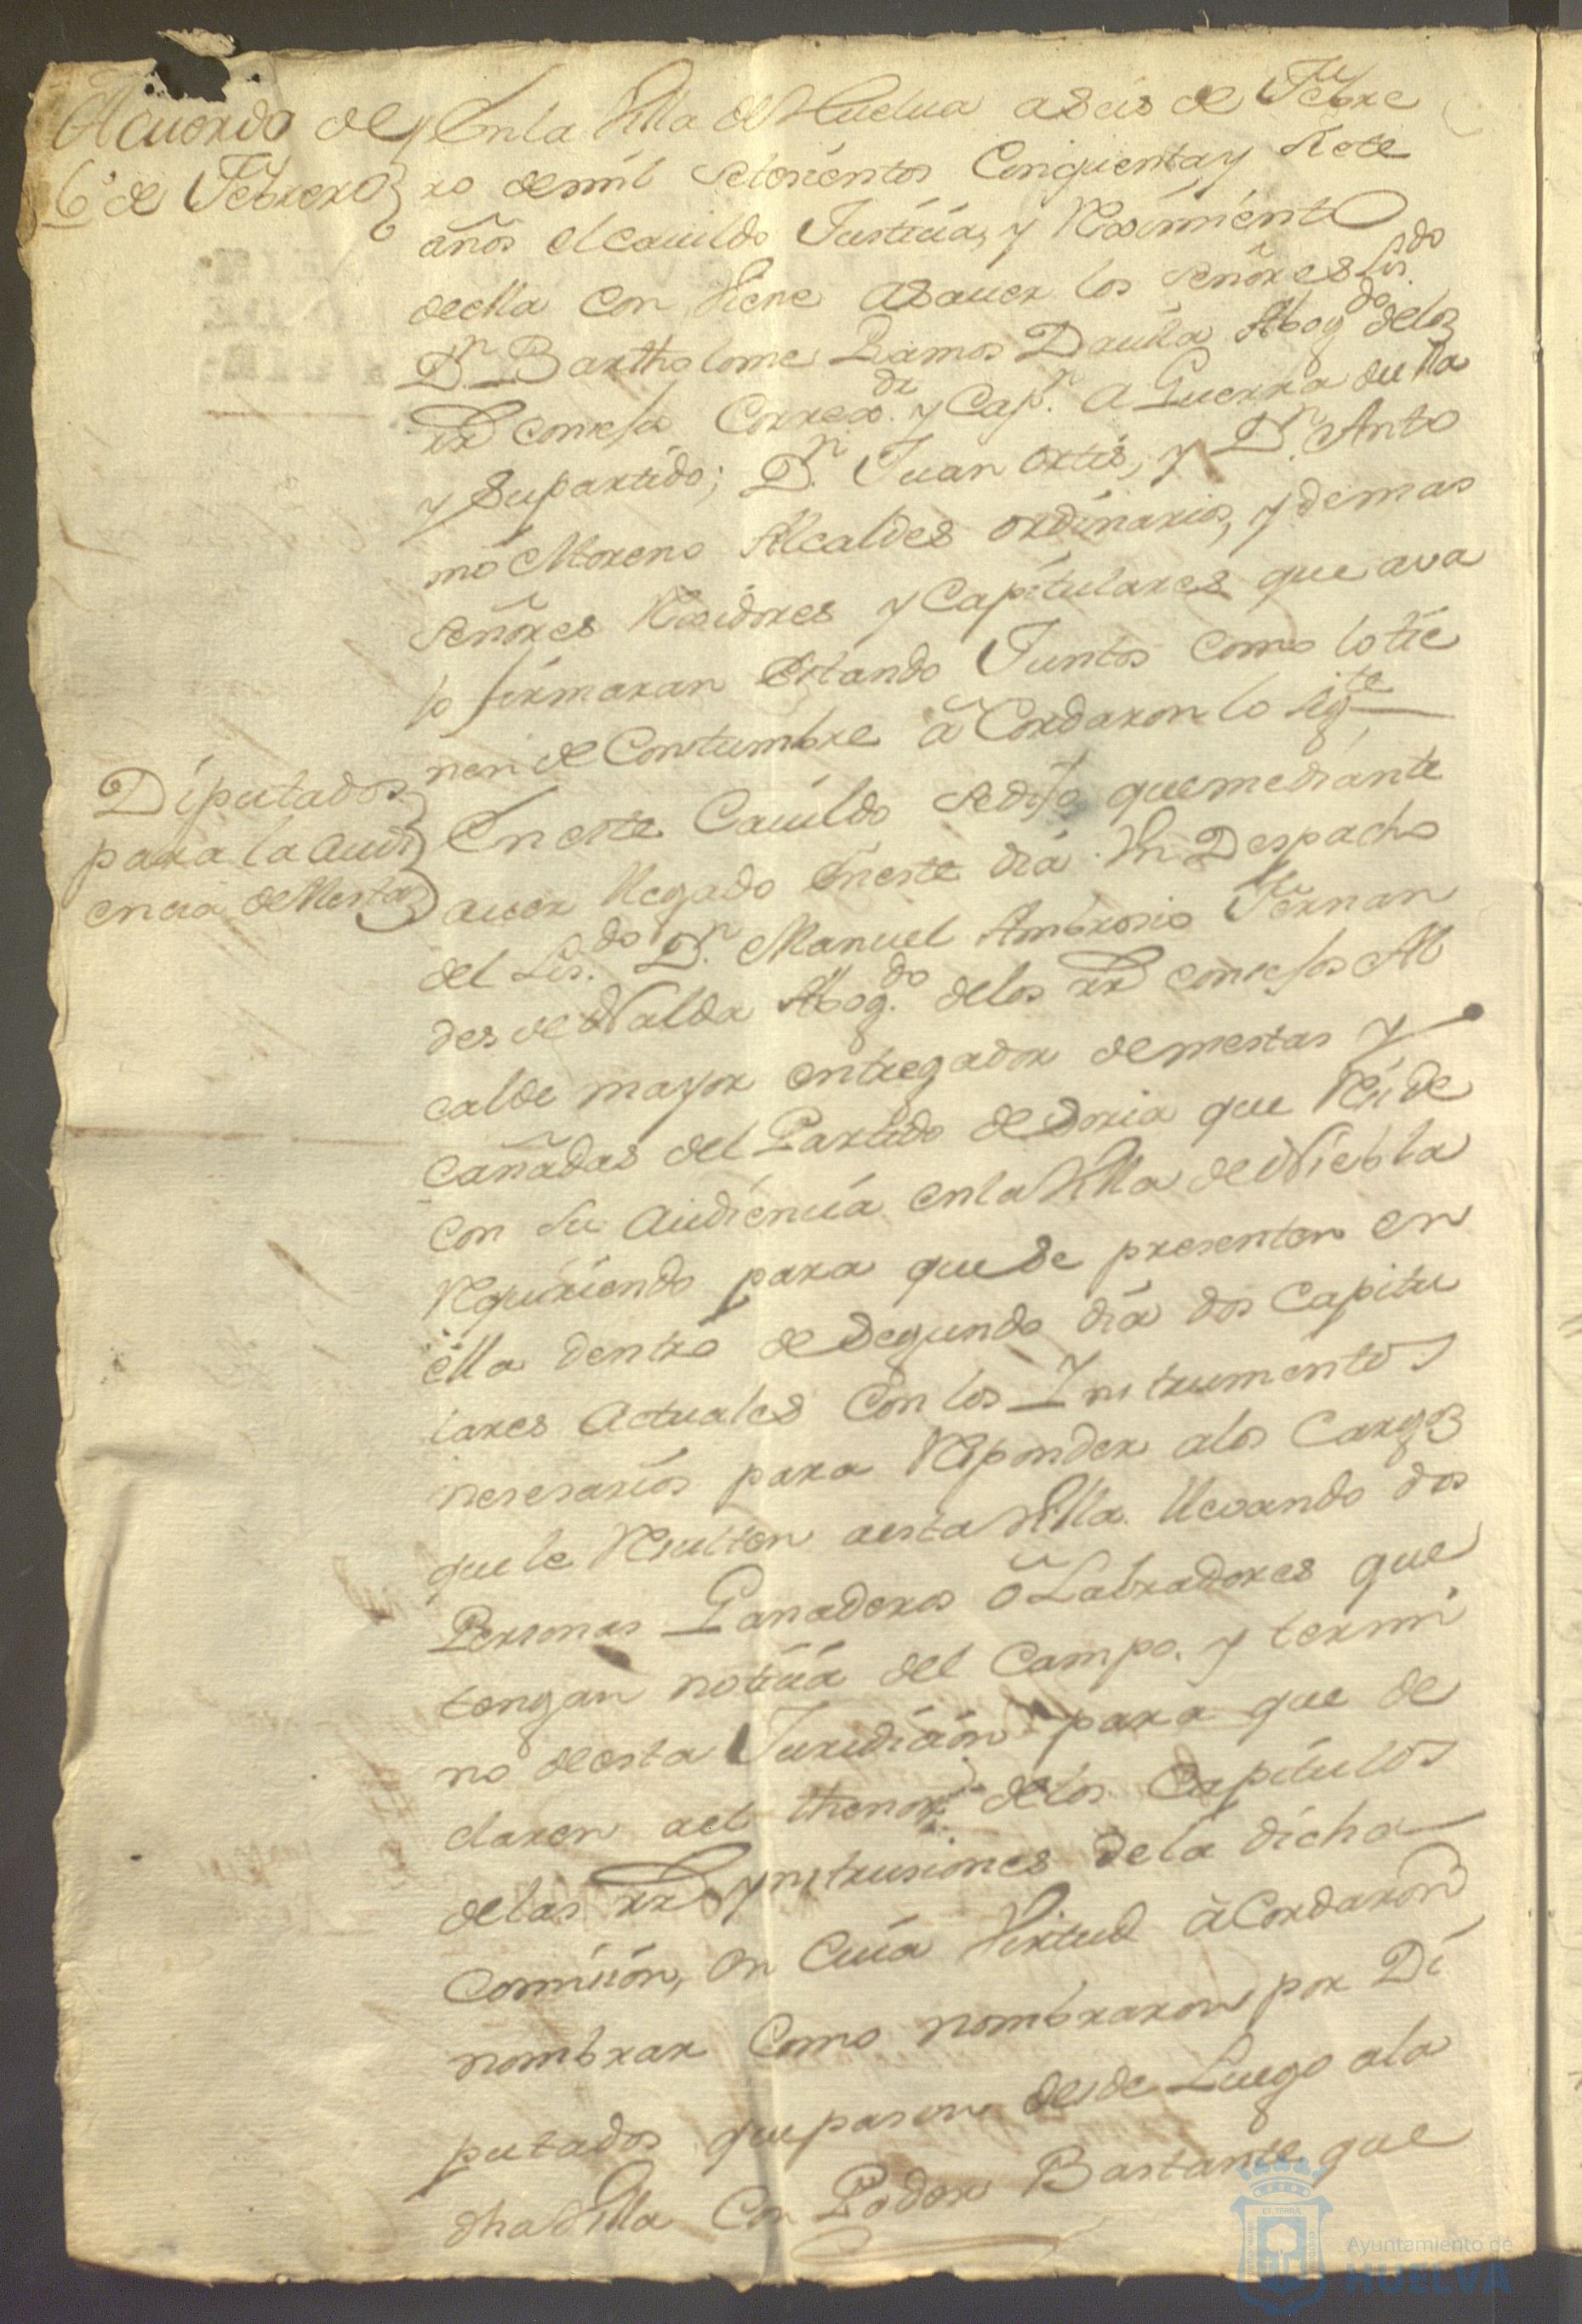 Acuerdo de
6 de Febrero
En la Villa de Huelua a Seis de Febre
ro de mil Setesientos Cinquenta y Siete
años el cauildo Justicia, y Reximiento
de ella con Viene a Sauer los Señores Lis.do
D.n Bartholome Ramos Dauila Abog.do de los
RR consejos Correx.dr y Cap.n a Guerra de ella
y Su partido; D.n Juan Ortis, y D.n Anto
nio Moreno Alcaldes ordinarios, y demas
Señores Rexidores y Capitulares que aua
jo firmaran Estando Juntos como lo tie
nen de Contumbre aCordaron lo sig.te
Diputados
para la Audi
encia de Mestas
En este Cauildo se dijo que mediante
auer llegado En este dia Vn Despacho
del Lis.do D.n Manuel Ambrosio Fernan
des de Nalda Abog.do de los RR consejos Al
calde mayor entregador de mestas y
cañadas del Partido de Soria que Reside
con su Audiencia en la Villa de Niebla
Requiriendo para que Se presenten en
ella dentro de Segundo dia dos Capitu
lares Actuales Con los Instrumentos
nesesarios para Responder a los Cargos
que le Resulten a esta Villa llevando dos
Personas Ganaderos o Labradores que
tengan noticia del Campo, y termi
no de esta Juridicion para que de
claren a el thenor de los Capitulos
de las RR ynstrusiones de la dicha
Comision, en Cuia Virtud aCordaron
nombrar Como nombraron por Di
putados que pasen desde Luego a la
dha Villa Con Poder Bastante que
Ayuntamiento de
HUELVA